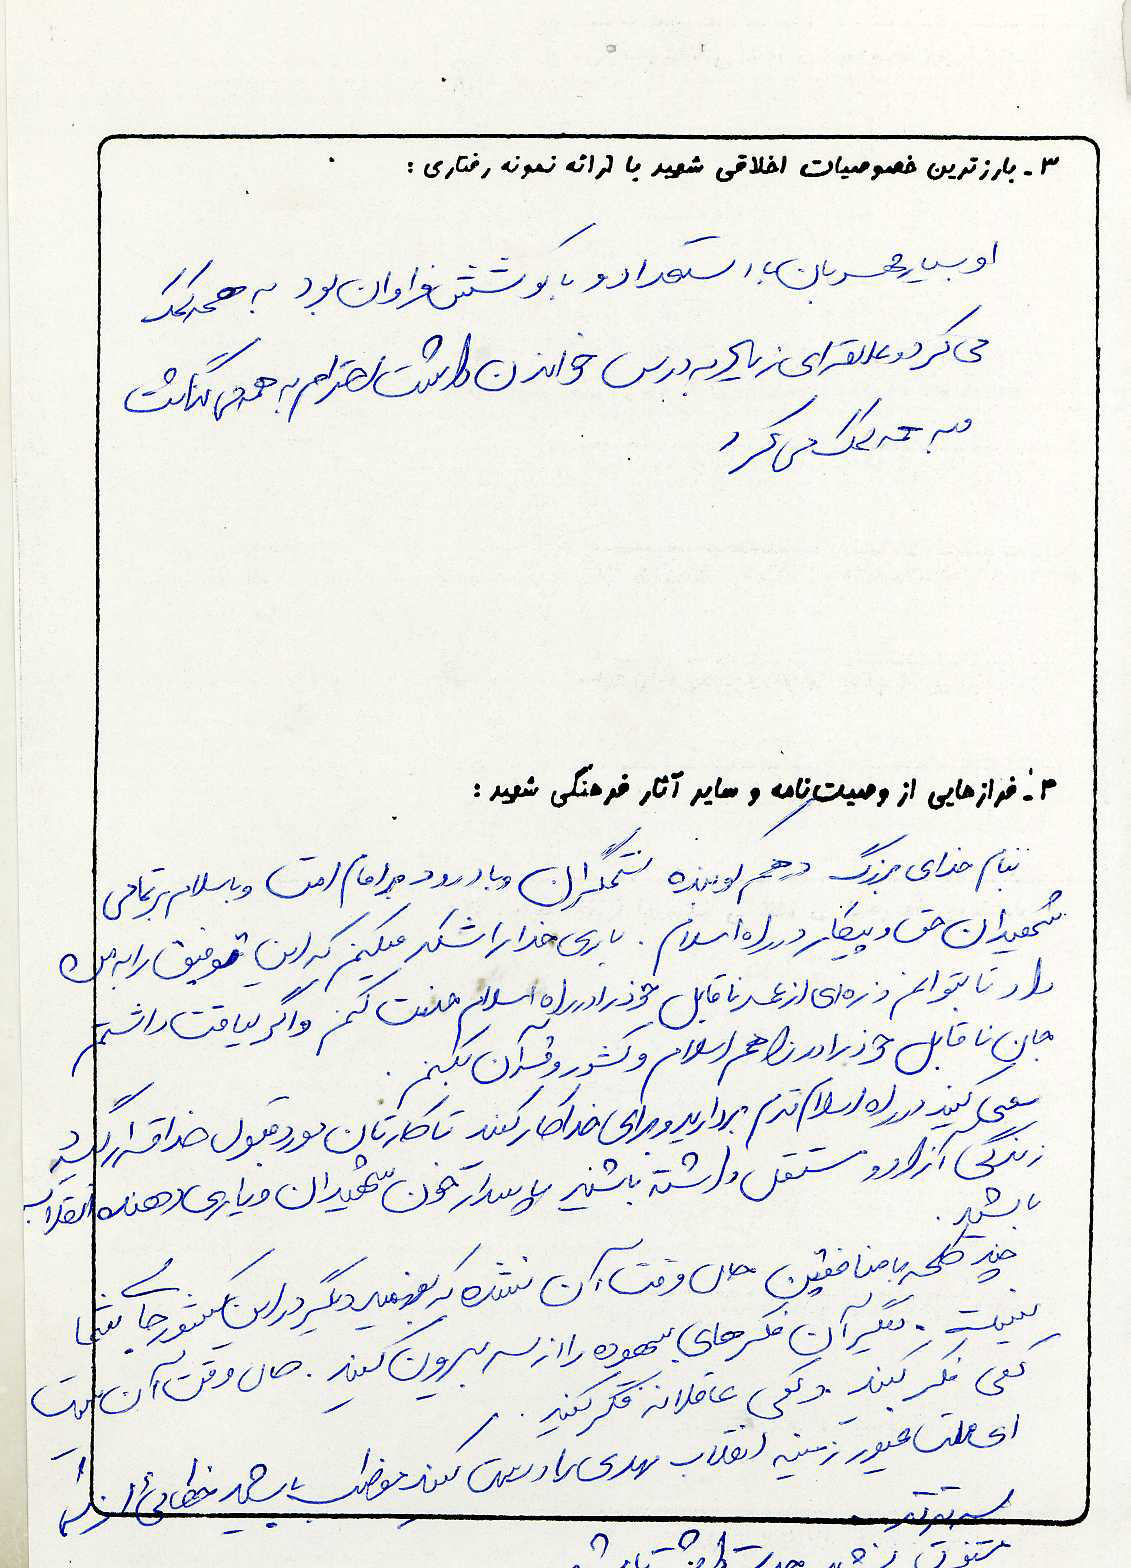 ۳- بارزترین خصوصیات اخلاقی شهید با ارائه نمونه رفتاری :
او بسیار مهربان با استعداد و با کوشش فراوان بود به همه کمک
می کرد و علاقه ای زیاد به درس خواندن داشت احترام به همه می گذاشت
و به همه کمک می کرد
۴- فرازهایی از وصیت نامه و سایر آثار فرهنگی شهید :
بنام خدای بزرگ درهم کوبنده ستمگران و با درود بر امام امت و با سلام بر تمامی
شهیدان حق و پیکار در راه اسلام . باری خدا را شکر میکنم که این توفیق را به من
داد تا بتوانم ذره ای از عمر ناقابل خود را در راه اسلام خدمت کنم و اگر لیاقت داشتم
جان ناقابل خود را در راه اسلام و کشور و قرآن بکنم .
سعی کنید در راه اسلام قدم بردارید و برای خدا کار کنید تا کارتان مورد قبول خدا قرار گیرد
زندگی آزاد و مستقل داشته باشید پاسدار خون شهیدان و یاری دهنده انقلاب
باشید .
چند کلمه با منافقین حال وقت آن نشده که بفهمید دیگر در این کشور جای شما
نیست . دیگر آن فکرهای بیهوده را از سر بیرون کنید . حال وقت آن نیست
کمی فکر کنید . و کمی عاقلانه فکر کنید .
ای ملت غیور زمینه انقلاب مهدی را درست کنید مواظب باشید خطائی از شما
سر نزند .